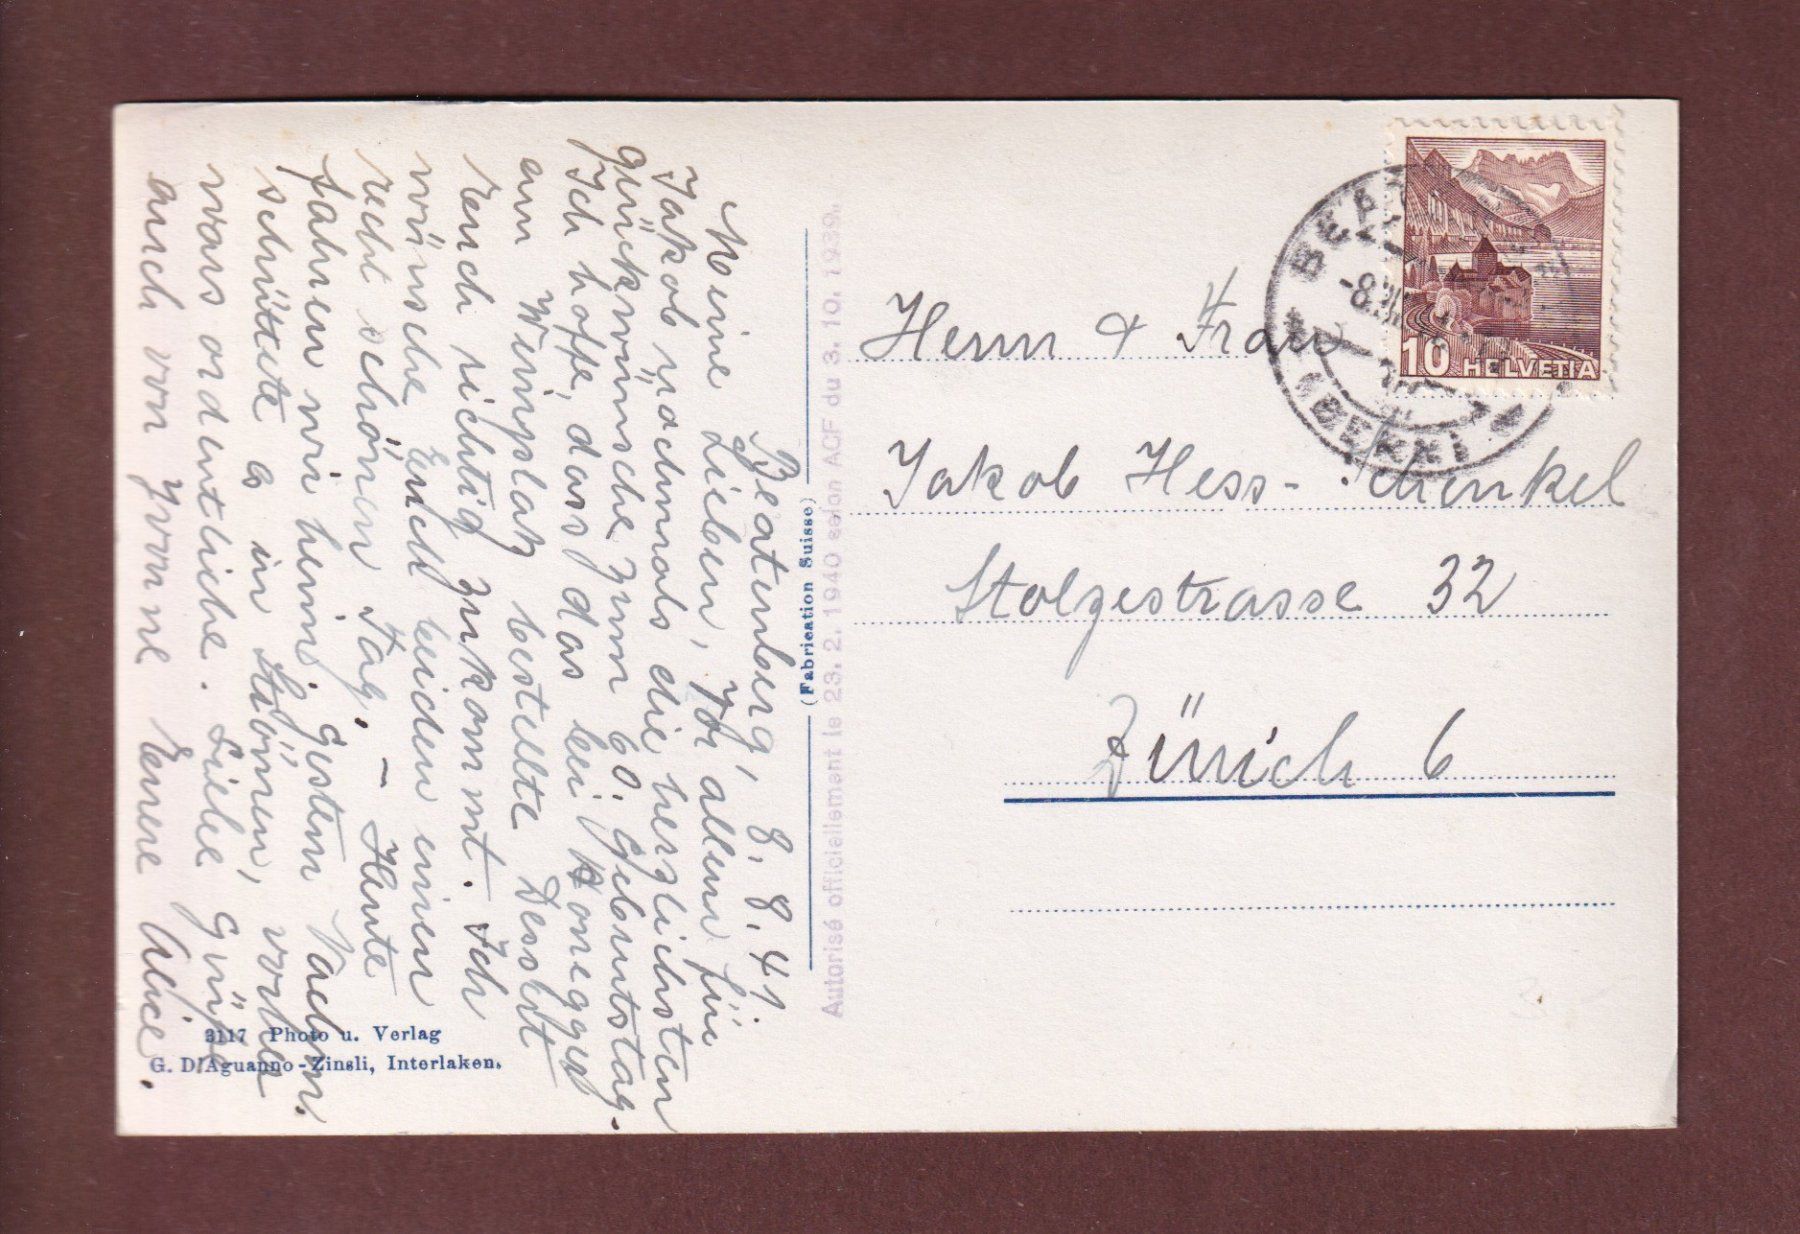 Beatenberg, 8. 8. 41.
Meine Lieben, Vor allem für
Jakob nachmals die herzlichsten
glückwünsche zum 60. Geburtstag.
Ich hoffe, dass das bei Honegger
am Weinplatz bestellte Dessert
rench richtig zukommt. Ich
wünsche Euch beiden einen
recht schönen Tag. – Heute
fahren wir heim. Gestern Nachm.
schüttete es in Strömen, vorher
wars ordentlich. Liebe Grüsse
auch von Yvonne Eure Alice.
3117 Photo u. Verlag
G. D'Aguanno-Zinsli, Interlaken.
(Fabrication Suisse)
Autorisé officiellement le 23. 2. 1940 selon ACF du 3. 10. 1939.
10 HELVETIA
(BERN)
Herrn & Frau
Jakob Hess-Schenkel
Stolzestrasse 32
Zürich 6